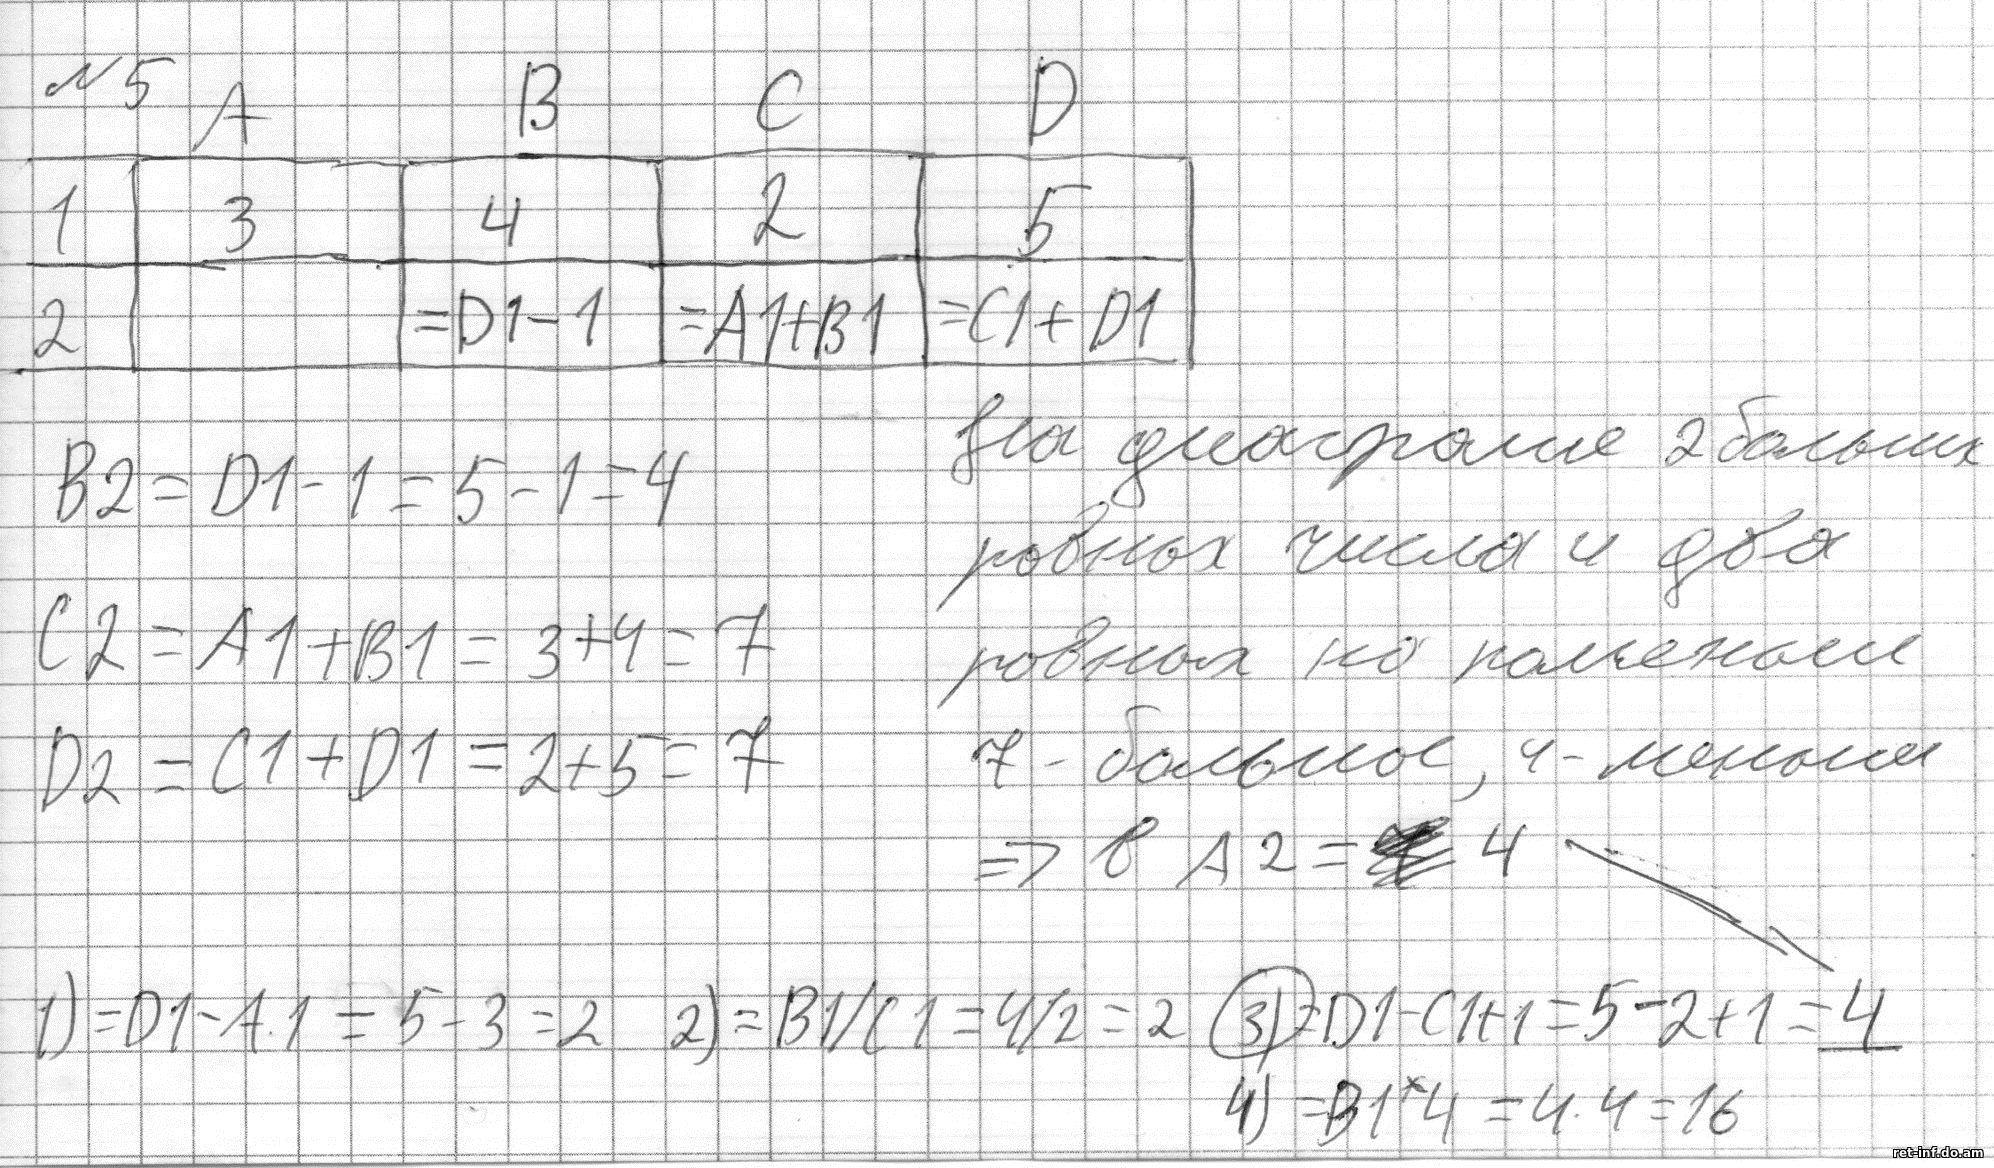 №5
A B C D
1 3 4 2 5
2 =D1-1 =A1+B1 =C1+D1
B2=D1-1=5-1=4
C2=A1+B1=3+4=7
D2=C1+D1=2+5=7
На диаграмме 2 больших
ровных числа и два
ровных но поменьше
7-большое, 4-меньшее
=> в A2= 4
1) =D1-A1=5-3=2 2) =B1/C1=4/2=2 3) =D1-C1+1=5-2+1=4
4) =B1*4=4·4=16
ret-inf.do.am